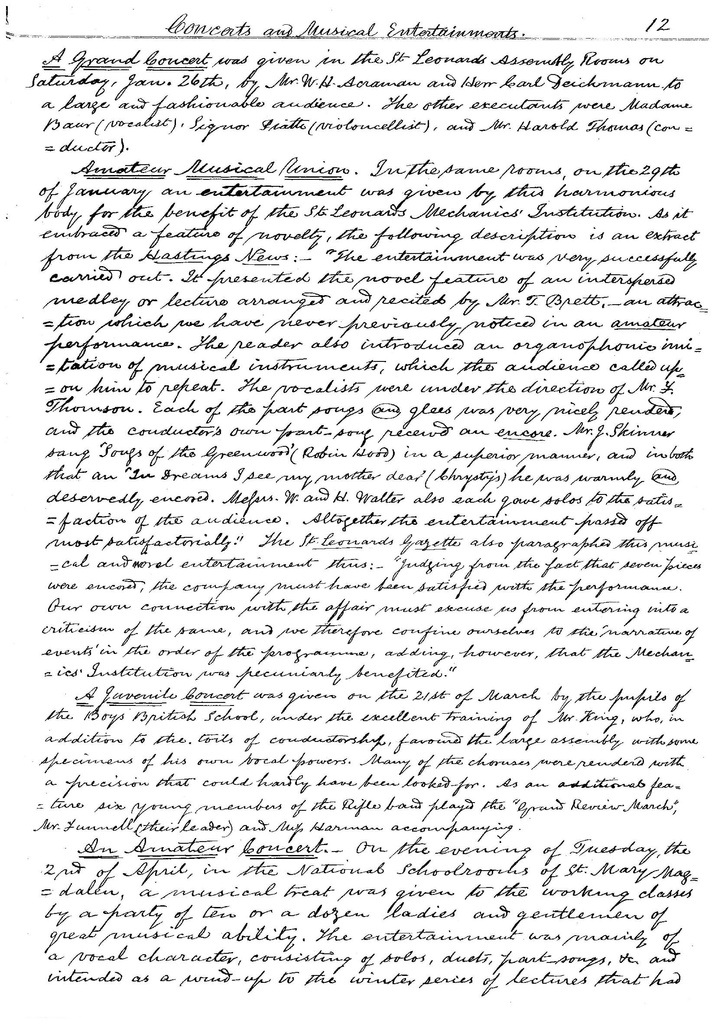 Concerts and Musical Entertainments. 12
A Grand Concert was given in the St Leonards Assembly Rooms on
Saturday, Jan. 26th, by Mr. W. H. Acraman and Herr Carl Deichmann to
a large and fashionable audience. The other executants were Madame
Baur (vocalist), Signor Piatti (violoncellist), and Mr. Harold Thomas (con=
=ductor).
Amateur Musical Union. In the same rooms, on the 29th
of January an entertainment was given by this harmonious
body, for the benefit of the St Leonards Mechanics' Institution. As it
embraced a feature of novelty, the following description is an extract
from the Hastings News:- "The entertainment was very successfully
carried out. It presented the novel feature of an interspersed
medley or lecture arranged and recited by Mr. T. Brett, - an attrac=
=tion which we have never previously noticed in an amateur
performance. The reader also introduced an organophonic imi=
=tation of musical instruments, which the audience called up=
=on him to repeat. The vocalists were under the direction of Mr. F.
Thomson. Each of the part songs and glees was very nicely renderd,
and the conductor's own part-song receivd an encore. Mr. J. Skinner
sang 'Songs of the Greenwood' (Robin Hood) in a superior manner, and in both
that an "In Dreams I see my mother dear" (Chrysty's) he was warmly and
deservedly encored. Messrs. W. and H. Walter also each gave solos to the satis=
=faction of the audience. Altogether the entertainment passed off
most satisfactorially." The St. Leonards Gazette also paragraphed this musi=
=cal and novel entertainment thus:- "Judging from the fact that seven pieces
were encord, the company must have been satisfied with the performance.
Our own connection with the affair must excuse us from entering into a
criticism of the same, and we therefore confine ourselves to the 'narrative of
events' in the order of the programme, adding, however, that the Mechan=
=ics' Institution was pecuniarly benefited."
A Juvenile Concert was given on the 21st of March by the pupils of
the Boys British School, under the excellent training of Mr. King, who, in
addition to the toils of conductorship, favourd the large assembly with some
specimens of his own vocal powers. Many of the choruses were renderd with
a precision that could hardly have been looked-for. As an additional fea=
=ture six young members of the Rifle band played the "Grand Review March",
Mr. Funnell (their leader) and Miss Harman accompanying.
An Amateur Concert. - On the evening of Tuesday, the
2nd of April, in the National Schoolrooms of St. Mary Mag=
=dalen, a musical treat was given to the working classes
by a party of ten or a dozen ladies and gentlemen of
great musical ability. The entertainment was mainly of
a vocal character, consisting of solos, duets, part-songs, &c. and
intended as a wind-up to the winter series of lectures that had